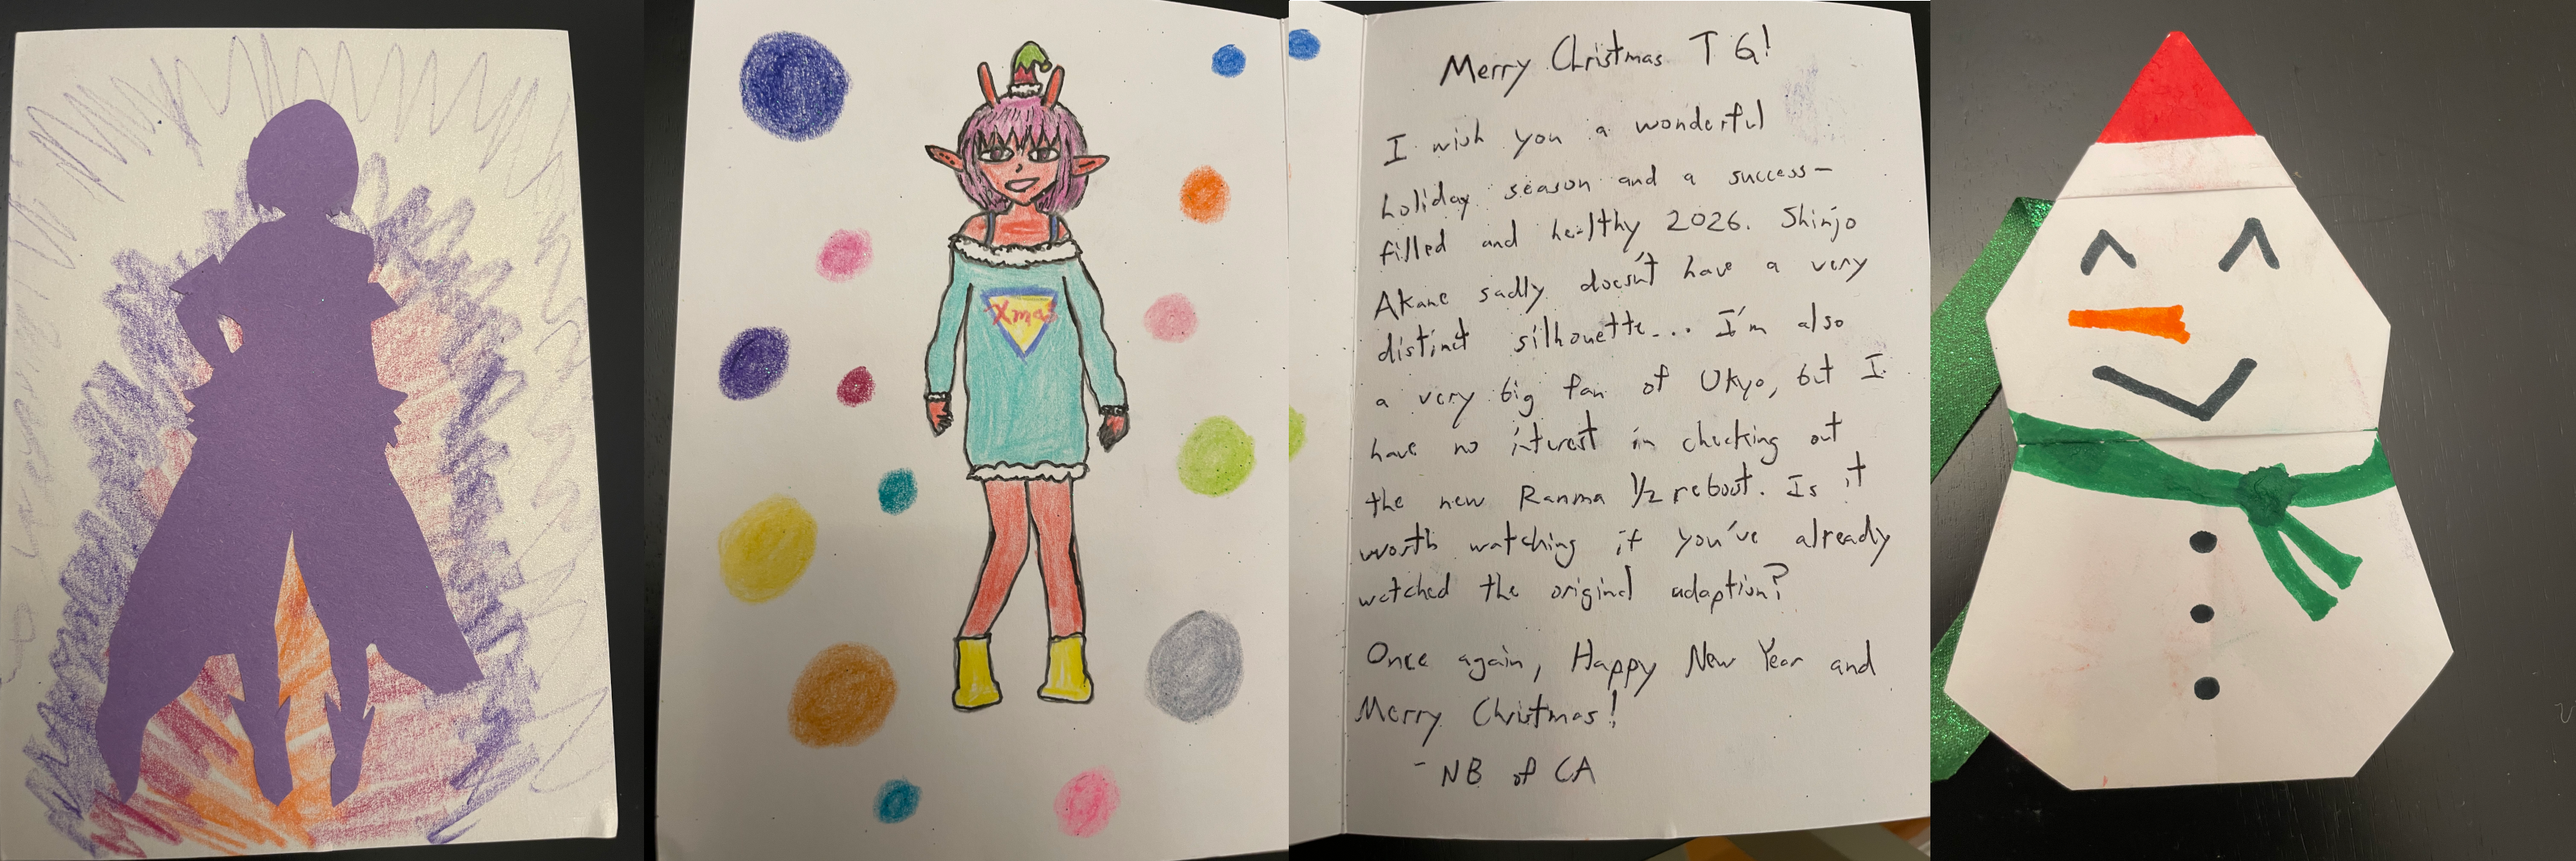 Xmas
Merry Christmas T G!
I wish you a wonderful
holiday season and a success-
filled and healthy 2026. Shinjo
Akane sadly doesn't have a very
distinct silhouette... I'm also
a very big fan of Ukyo, but I
have no interest in checking out
the new Ranma 1/2 reboot. Is it
worth watching if you've already
watched the original adaption?
Once again, Happy New Year and
Merry Christmas!
- NB of CA